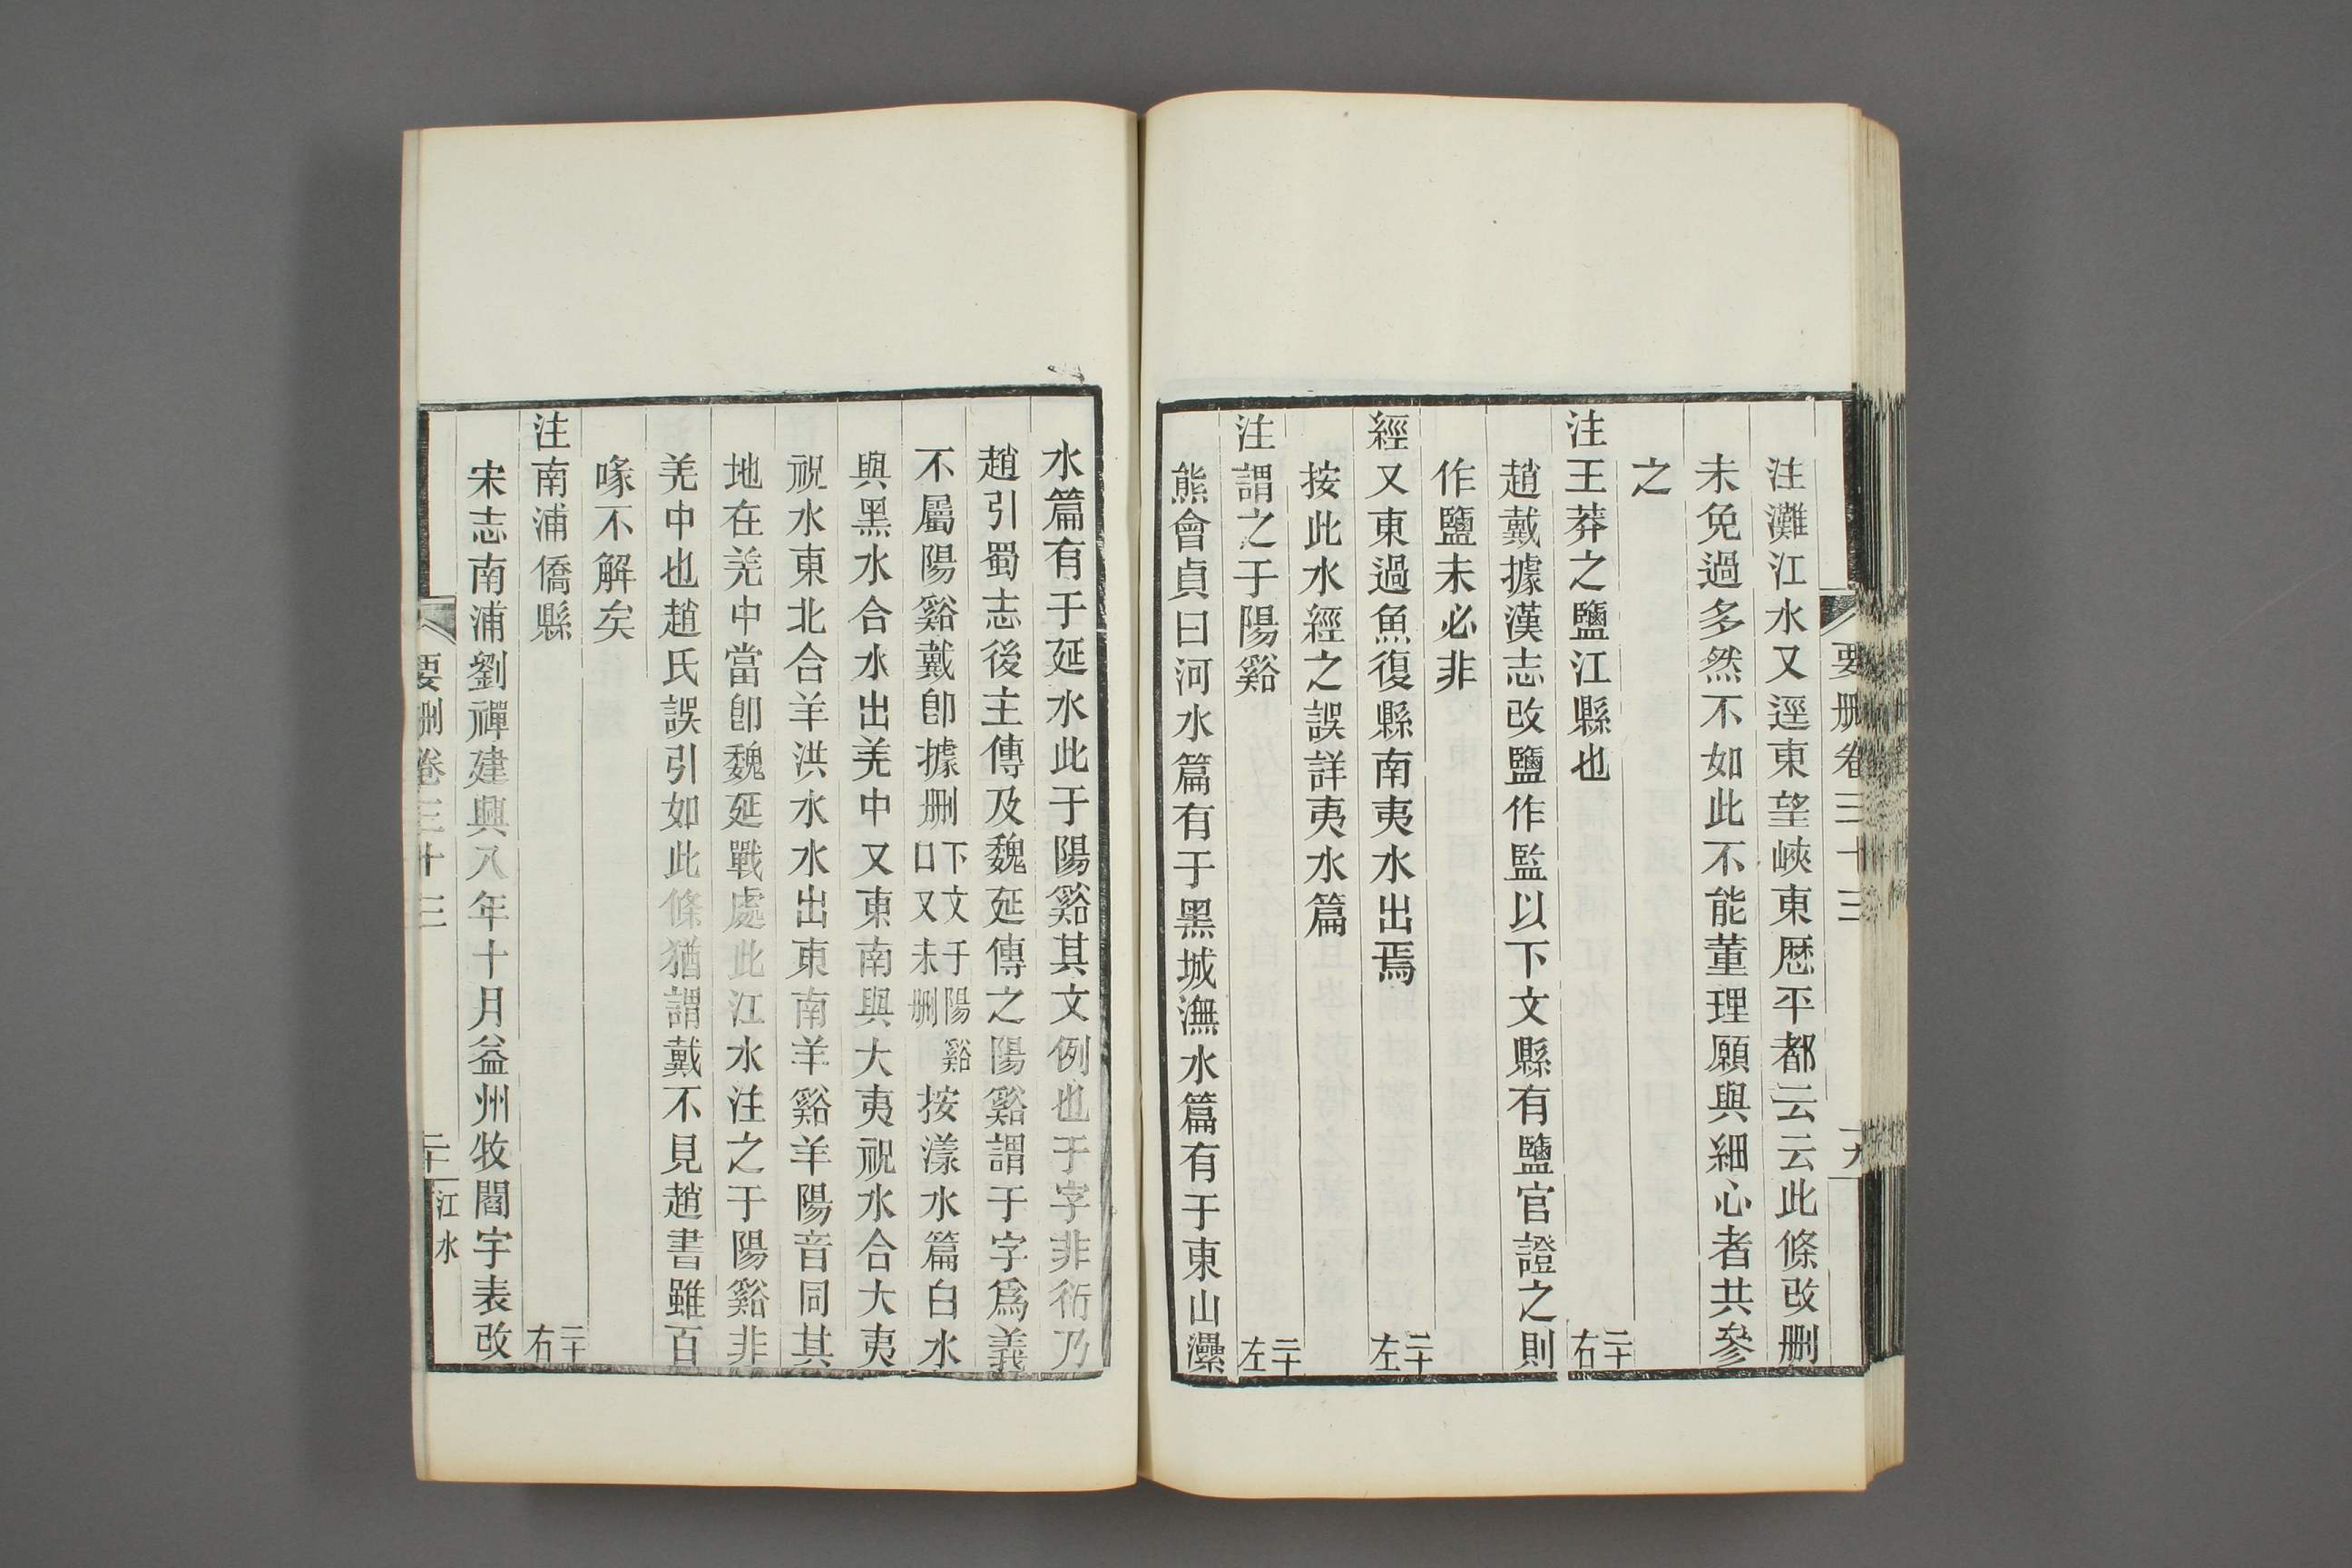 要刪卷三十三
十九
注灘江水又逕東望峽東歷平都云云此條改刪
未免過多然不如此不能董理願與細心者共參
之
注王莽之鹽江縣也 二十右
趙戴據漢志改鹽作監以下文縣有鹽官證之則
作鹽未必非
經又東過魚復縣南夷水出焉 二十左
按此水經之誤詳夷水篇
注謂之于陽谿 二十左
熊會貞曰河水篇有于黑城漁水篇有于東山灅
水篇有于延水此于陽谿其文例也于字非衍乃
趙引蜀志後主傳及魏延傳之陽谿謂于字爲義
不屬陽谿戴卽據刪下文于陽谿口又未刪按漾水篇白水
與黑水合水出羌中又東南與大夷祝水合大夷
祝水東北合羊洪水水出東南羊谿羊陽音同其
地在羌中當卽魏延戰處此江水注之于陽谿非
羌中也趙氏誤引如此條猶謂戴不見趙書雖百
喙不解矣
注南浦僑縣 二十右
宋志南浦劉禪建興八年十月益州牧閻宇表改
要刪卷三十三
二十
江水